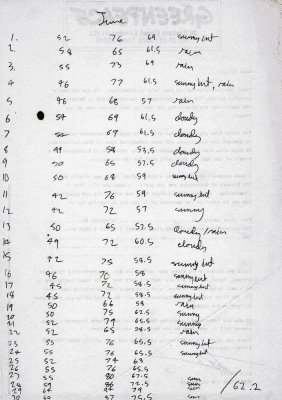 June
1. 52 76 64 sunny int
2. 58 65 61.5 rain
3. 55 73 64 rain
4 46 77 61.5 sunny int, rain
5 46 68 57 rain
6 54 69 61.5 cloudy
7 54 69 61.5 cloudy
8 49 58 53.5 cloudy
9 50 65 57.5 cloudy
10 50 68 59 sunny int
11 42 76 59 sunny int
12 42 72 57 sunny
13 50 65 57.5 cloudy/rain
14 49 72 60.5 cloudy
15 42 75 58.5 sunny int
16 46 70 58 sunny int
17 45 72 58.5 sunny int
18 45 72 58.5 sunny int
19 50 66 58 rain
20 50 75 62.5 sunny
21 52 79 65.5 sunny
22 52 65 58.5 rain
23 55 76 65.5 sunny int
24 55 76 65.5 sunny int
25 52 74 63
26 55 76 65.5
27 55 80 67.5
28 86 72.5
29 64 94 79
30 75.5 /62.2